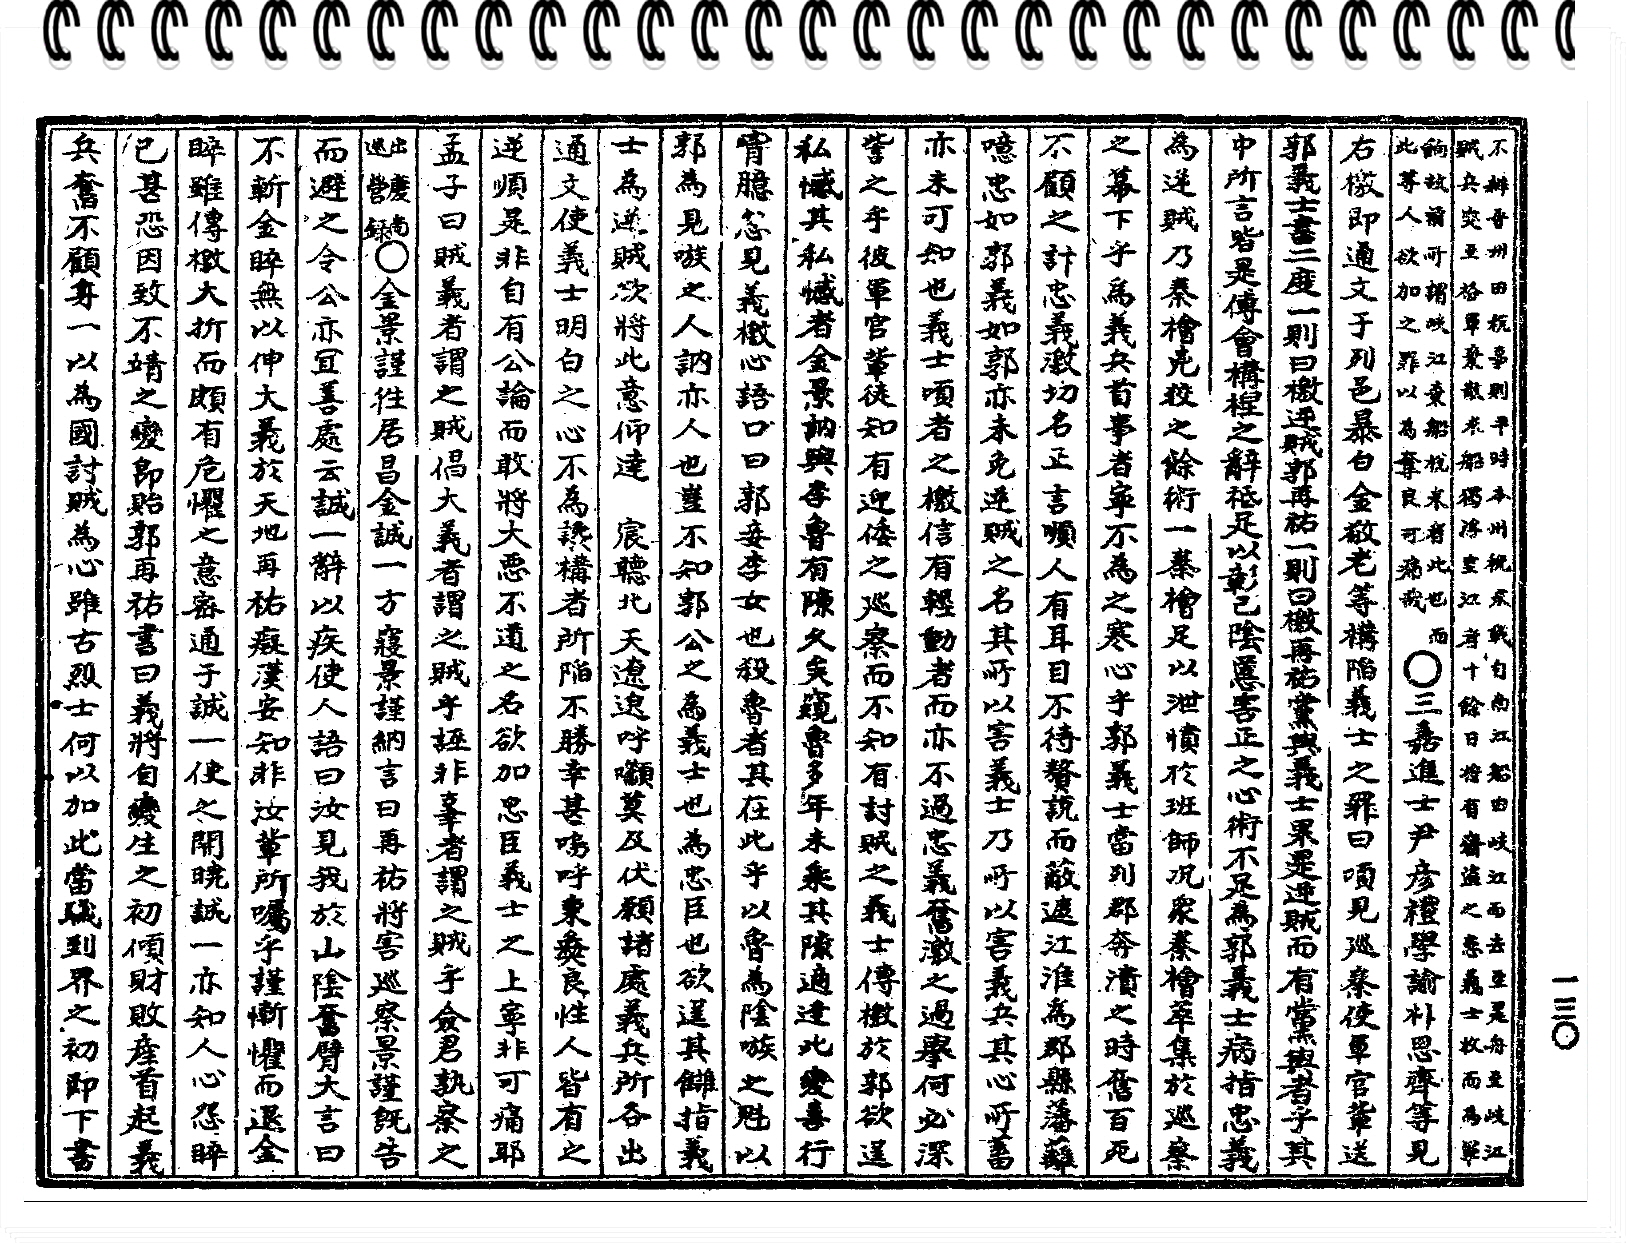 不辨晉州田杭事則平時本州稅民賊自南江船由岐江而去至晃舟至岐江
賊兵突至格軍棄散來船獨浮空江者十餘日擔有竊盜之患義士收而為軍
餉故諺所謂岐江棄船杭來者此也而
此等人欲加之罪以為奪良可痛哉
〇三嘉進士尹彥禮學諭朴思齊等見
右檄即通文于列邑暴白金敬老等構陷義士之罪曰頃見巡察使軍官輩送
郭義士書二度一則曰檄逆賊郭再祐一則曰檄再祐黨與義士果是逆賊而有黨與者乎其
中所言皆是傅會構捏之辭祗足以彰己陰慝害正之心術不足為郭義士病指忠義
為逆賊乃秦檜兇狡之餘術一秦檜足以泄憤於班師况衆秦檜萃集於巡察
之幕下乎為義兵首事者寧不為之寒心乎郭義士當列郡奔潰之時奮百死
不顧之計忠義激切名正言順人有耳目不待贅說而蔽遮江淮為郡縣藩蘺
噫忠如郭義如郭亦未免逆賊之名其所以害義士乃所以害義兵其心所蓄
亦未可知也義士頃者之檄信有輕動者而亦不過忠義奮激之過擧何必深
訾之乎彼軍官輩徒知有迎倭之巡察而不知有討賊之義士傳檄於郭欲逞
私憾其私憾者金景訥與李魯有隙久矣窺魯多年未乘其隙適逢此變喜行
胷臆忿見義檄心語口曰郭妾李女也殺魯者其在此乎以魯為陰嗾之魁以
郭為見嗾之人訥亦人也豈不知郭公之為義士也為忠臣也欲逞其讎指義
士為逆賊欲將此意仰達 宸聽北天遼遠呼籲莫及伏願諸處義兵所各出
通文使義士明白之心不為讒構者所陷不勝幸甚嗚呼秉彜良性人皆有之
逆順是非自有公論而敢將大惡不道之名欲加忠臣義士之上寧非可痛耶
孟子曰賊義者謂之賊倡大義者謂之賊乎誣非辜者謂之賊乎僉君孰察之
出慶尚
巡營錄
〇金景謹徃居昌金誠一方寢景謹納言曰再祐將害巡察景謹旣告
而避之令公亦宜善處云誠一辭以疾使人語曰汝見我於山陰奮臂大言曰
不斬金睟無以伸大義於天地再祐癡漢安知非汝輩所囑乎謹慚懼而退金
睟雖傳檄大折而頗有危懼之意密通于誠一使之開曉誠一亦知人心怨睟
已甚恐因致不靖之變即貽郭再祐書曰義將自變生之初傾財敗產首起義
兵奮不顧身一以為國討賊為心雖古烈士何以加此當賊到界之初即下書